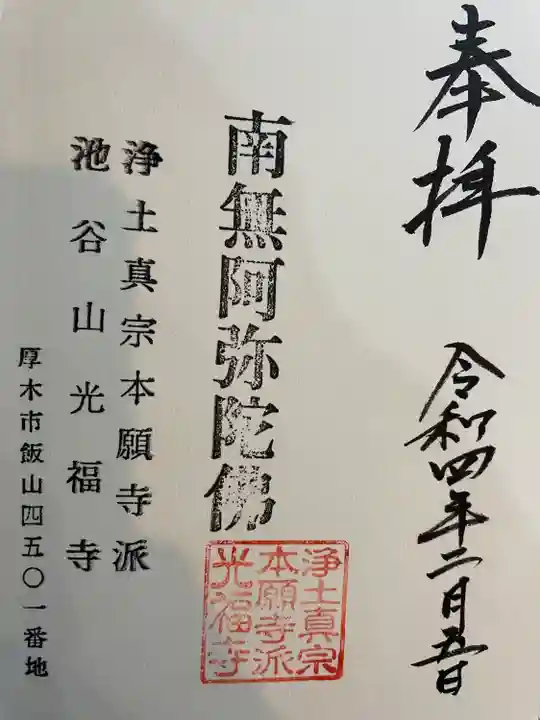 奉拝
令和四年二月五日
南無阿弥陀佛
浄土真宗
本願寺派
光福寺
浄土真宗本願寺派
池谷山光福寺
厚木市飯山四五〇一番地